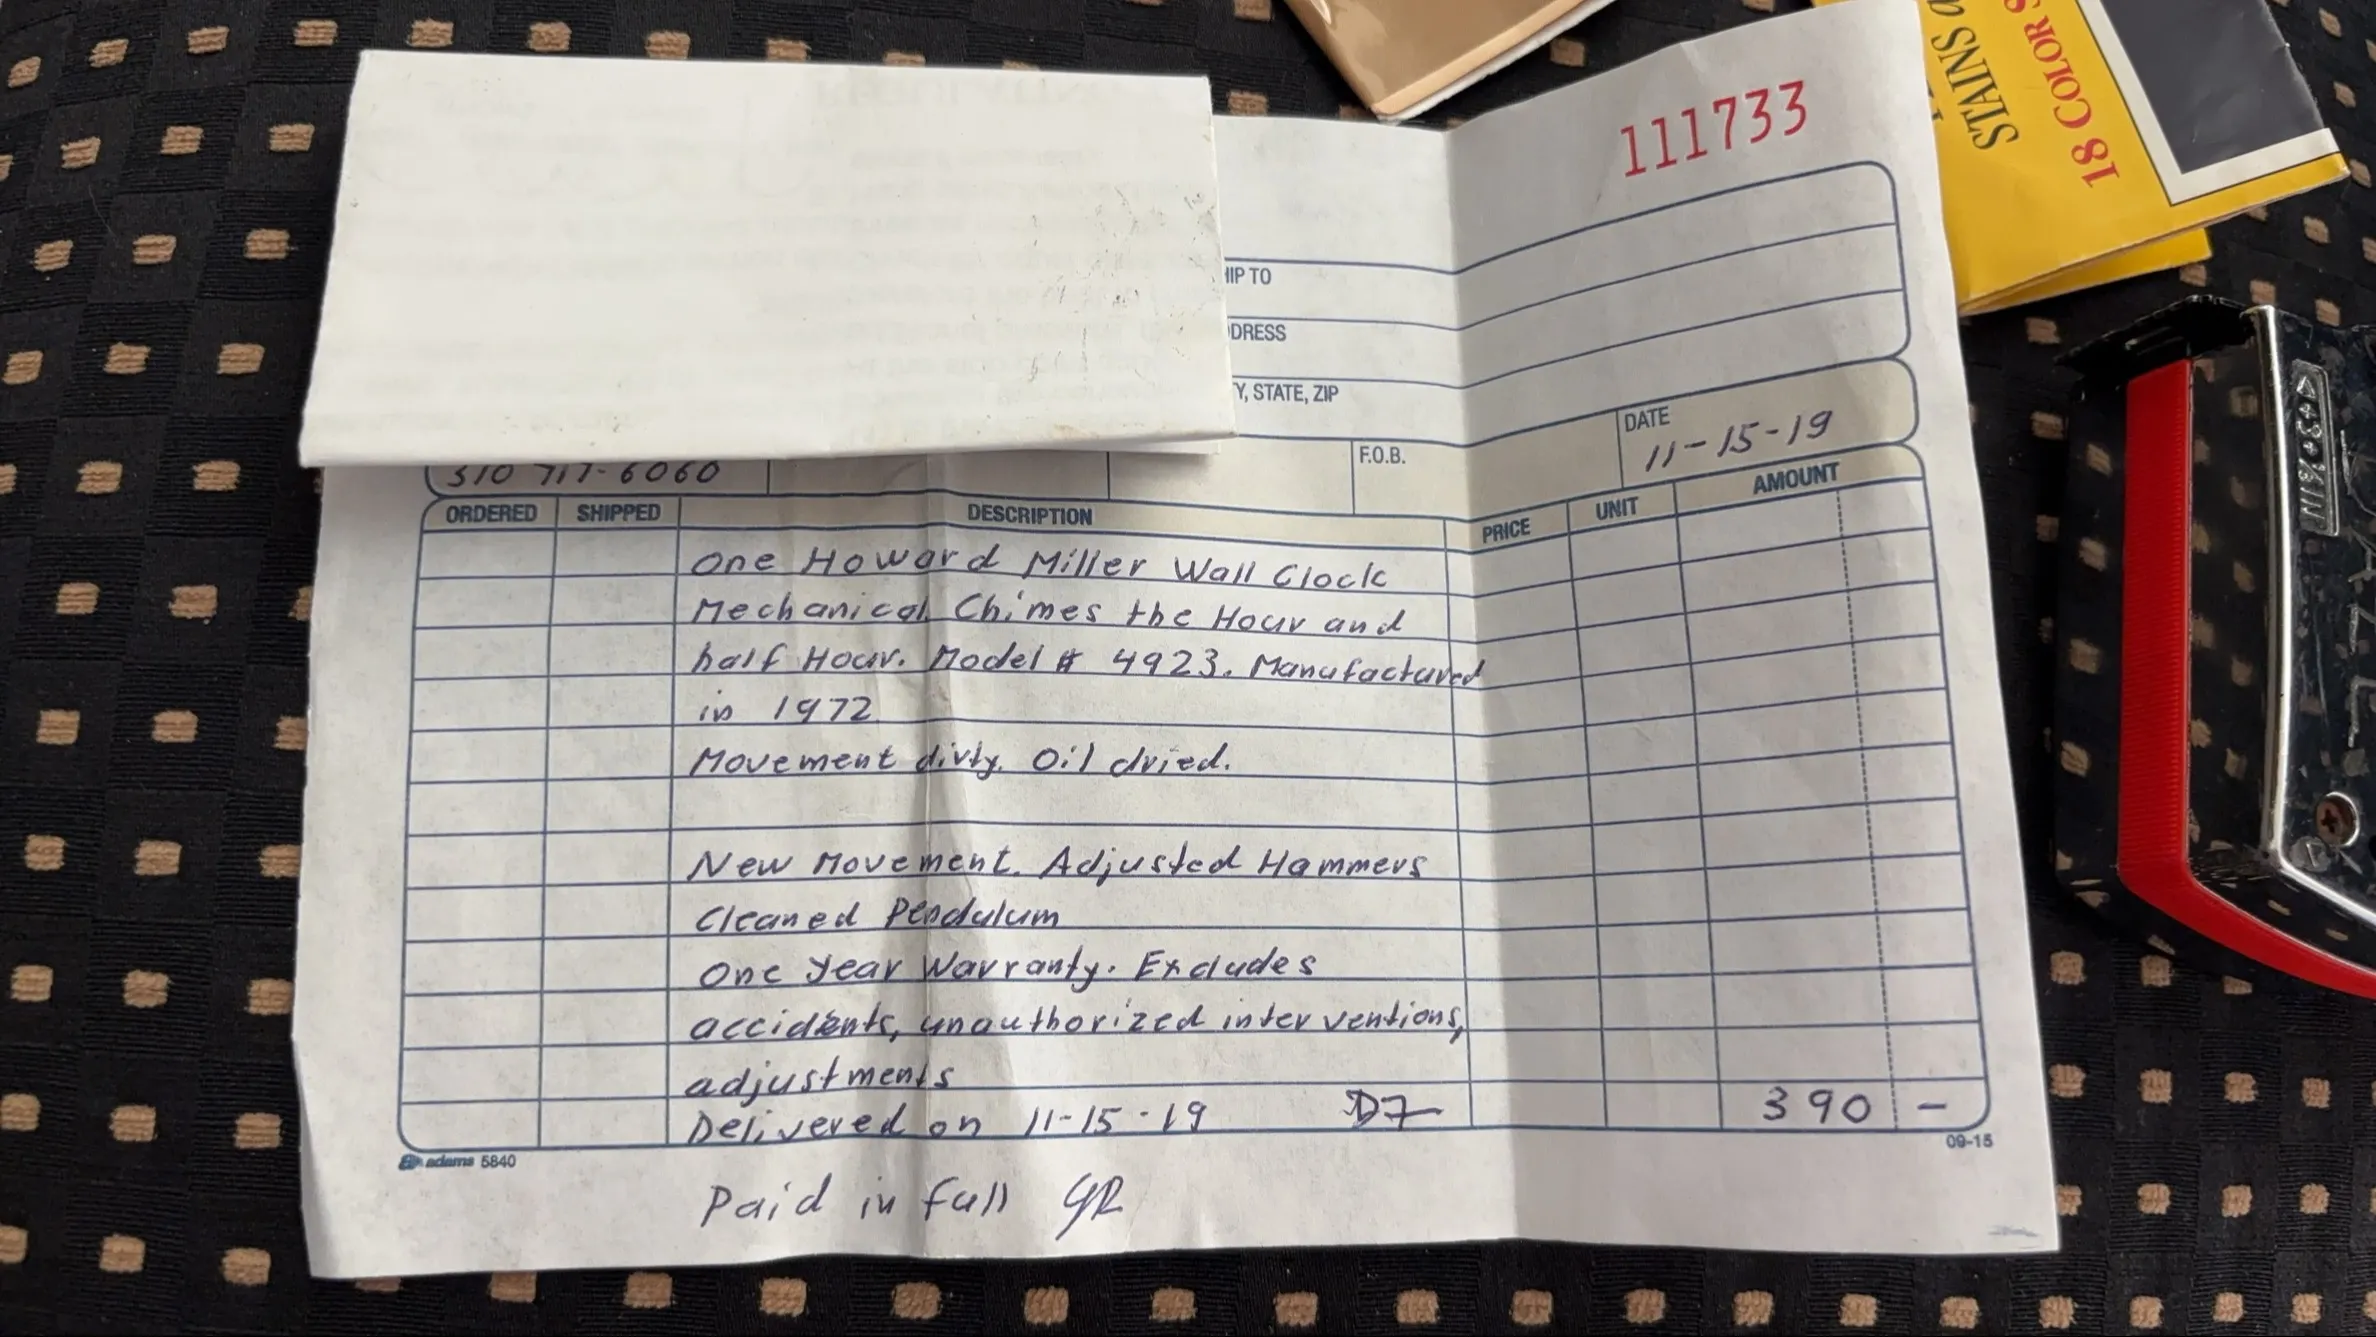 STAINS
18 COLOR
111733
HIP TO
DRESS
Y, STATE, ZIP
F.O.B.
DATE
11-15-19
310 717-6060
ORDERED SHIPPED DESCRIPTION PRICE UNIT AMOUNT
One Howard Miller Wall Clock
Mechanical. Chimes the Hour and
half Hour. Model # 4923. Manufactured
in 1972
Movement dirty. Oil dried.
New Movement. Adjusted Hammers
Cleaned Pendulum
One Year Warranty. Excludes
accidents, unauthorized interventions,
adjustments
Delivered on 11-15-19 390 -
adams 5840 09-15
Paid in full